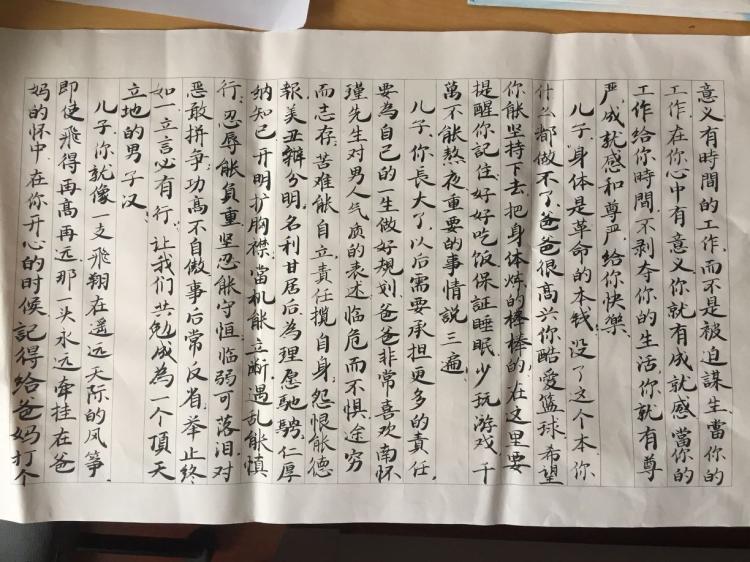 意义有時間的工作,而不是被迫謀生當你的
工作在你心中有意义你就有成就感當你的
工作给你時間不剥夺你的生活,你就有尊
严成就感和尊严给你快樂
儿子,身体是革命的本钱,没了这个本你
什么都做不了,爸爸很高兴你酷愛篮球希望
你能坚持下去,把身体炼的棒棒的,在这里要
提醒你記住好好吃饭保証睡眠,少玩游戏,千
萬不能熬夜重要的事情説三遍
儿子,你長大了,以后需要承担更多的責任,
要為自己的一生做好規划,爸爸非常喜欢南怀
瑾先生对男人气质的表述临危而不惧途穷
而志存,苦难能自立責任攬自身,怨恨能德
報美丑辯分明,名利甘居后為理愿馳騁,仁厚
纳知己开明扩胸襟當机能立断遇乱能慎
行,忍辱能負重坚忍能守恒临弱可落泪对
恶敢拼争,功高不自傲事后常反省举止終
如一立言必有行,让我们共勉成為一个頂天
立地的男子汉
儿子,你就像一支飛翔在遥远天际的风筝
即使飛得再高再远那一头永远牵挂在爸
妈的怀中,在你开心的时候記得给爸妈打个